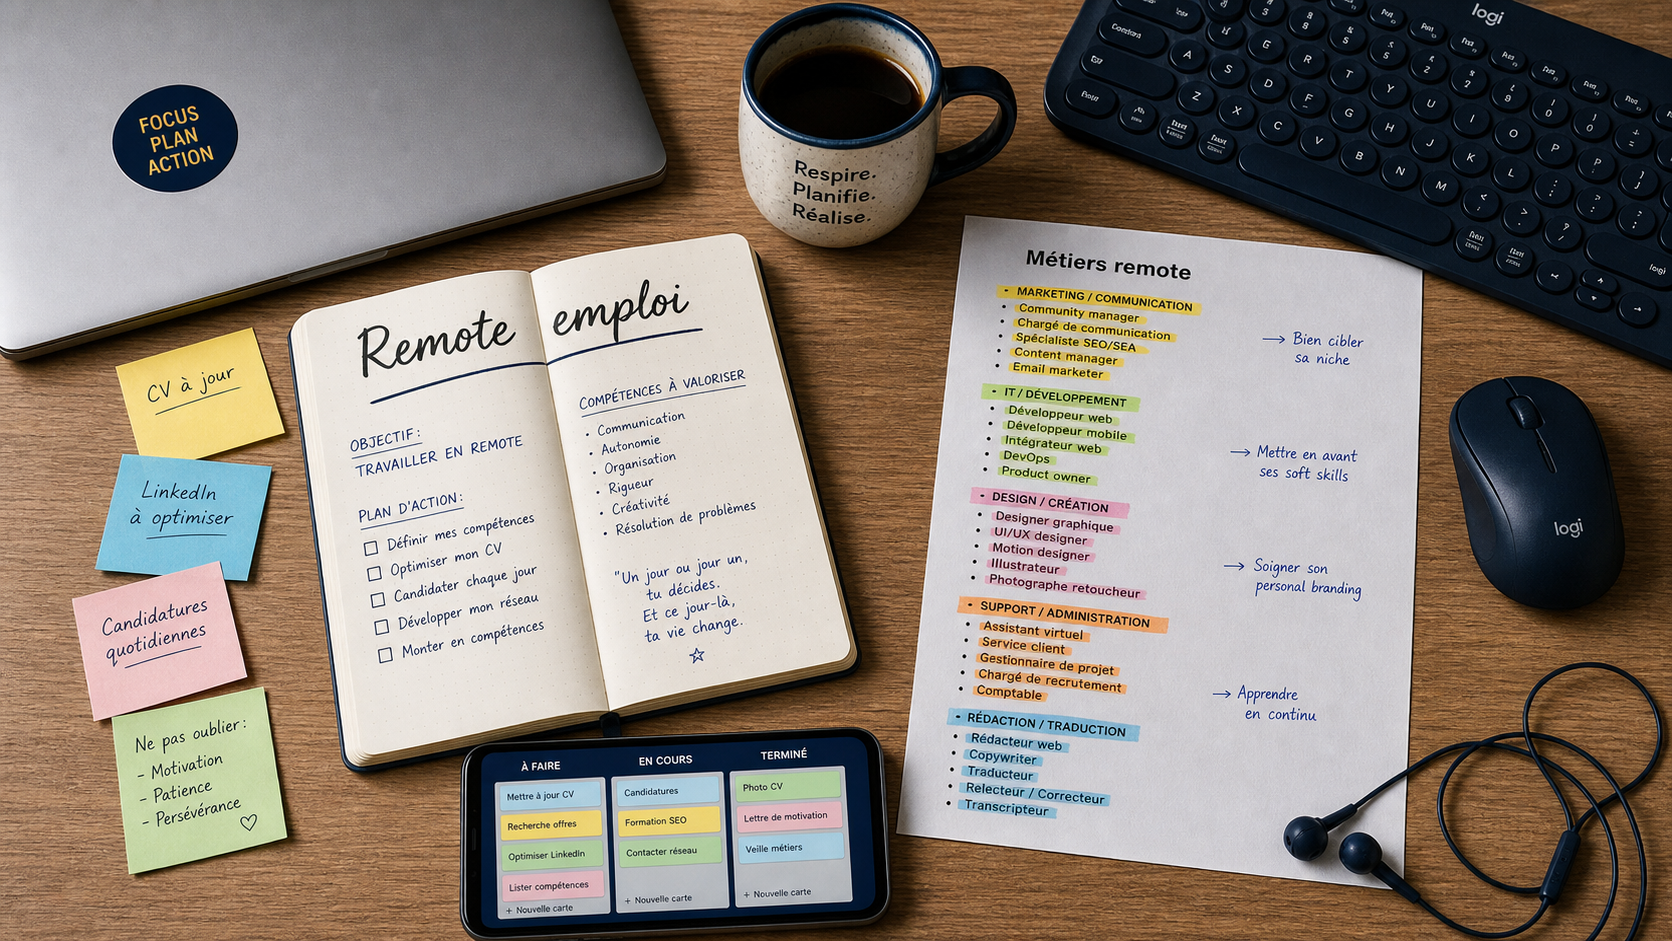 FOCUS
PLAN
ACTION
Respire.
Planifie.
Réalise.
logi
CV à jour
LinkedIn
à optimiser
Candidatures
quotidiennes
Ne pas oublier :
- Motivation
- Patience
- Persévérance
Remote emploi
OBJECTIF :
TRAVAILLER EN REMOTE
PLAN D'ACTION :
Définir mes compétences
Optimiser mon CV
Candidater chaque jour
Développer mon réseau
Monter en compétences
COMPÉTENCES À VALORISER
• Communication
• Autonomie
• Organisation
• Rigueur
• Créativité
• Résolution de problèmes
"Un jour ou jour un,
tu décides.
Et ce jour-là,
ta vie change.
Métiers remote
- MARKETING / COMMUNICATION
• Community manager
• Chargé de communication
• Spécialiste SEO/SEA
• Content manager
• Email marketer
- IT / DÉVELOPPEMENT
• Développeur web
• Développeur mobile
• Intégrateur web
• DevOps
• Product owner
- DESIGN / CRÉATION
• Designer graphique
• UI/UX designer
• Motion designer
• Illustrateur
• Photographe retoucheur
- SUPPORT / ADMINISTRATION
• Assistant virtuel
• Service client
• Gestionnaire de projet
• Chargé de recrutement
• Comptable
- RÉDACTION / TRADUCTION
• Rédacteur web
• Copywriter
• Traducteur
• Relecteur / Correcteur
• Transcripteur
→ Bien cibler
sa niche
→ Mettre en avant
ses soft skills
→ Soigner son
personal branding
→ Apprendre
en continu
À FAIRE
Mettre à jour CV
Recherche offres
Optimiser LinkedIn
Lister compétences
+ Nouvelle carte
EN COURS
Candidatures
Formation SEO
Contacter réseau
+ Nouvelle carte
TERMINÉ
Photo CV
Lettre de motivation
Veille métiers
+ Nouvelle carte
logi